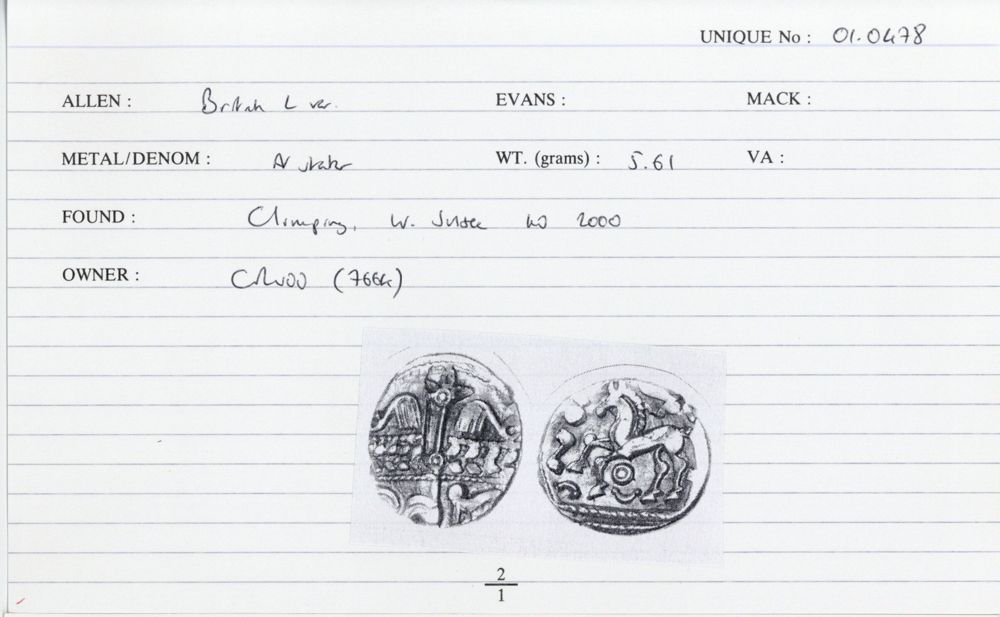 UNIQUE No : 01.0478
ALLEN : British L var. EVANS : MACK :
METAL/DENOM : AV stater WT. (grams) : 5.61 VA :
FOUND : Climping, W. Sussex 2000
OWNER : (766k)
2
1